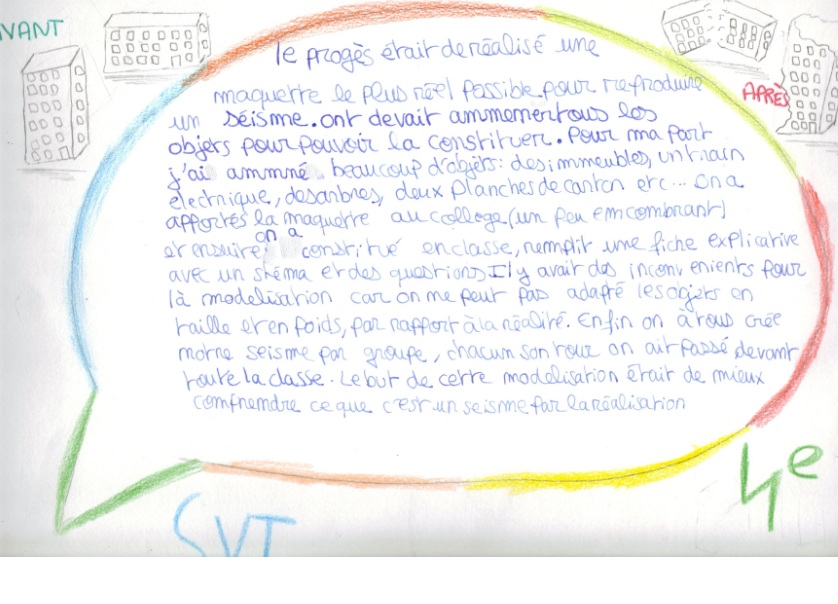 AVANT
le progès était de réalisé une
maquette le plus réel possible pour reproduire
un séisme. ont devait ammener tous les
objets pour pouvoir la constituer. Pour ma part
j'ai ammné beaucoup d'objets: des immeubles, un train
électrique, des arbres, deux planches de carton etc... On a
APRÈS
apportés la maquette au collège (un peu emcombrant)
et ensuite, on a constitué en classe, remplit une fiche explicative
avec un shéma et des questions. Il y avait des inconvenients pour
là modelisation car on ne peut pas adapté les objets en
taille et en poids, par rapport à la réalité. Enfin on à tous crée
notre seisme par groupe, chacun son tour on ait passé devant
toute la classe. Le but de cette modelisation était de mieux
comprendre ce que c'est un seisme par la réalisation
4e
SVT